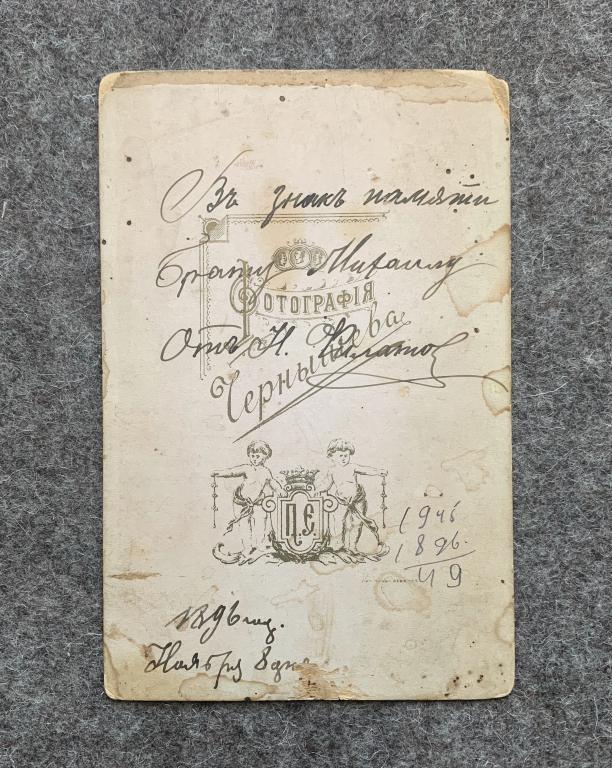 Въ знакъ памяти
Брату Михаилу
ФОТОГРАФІЯ
Отъ Н. Филатов
Чернышева
П.Е.
1946
1896.
49
1896 год.
Ноября 8 дня